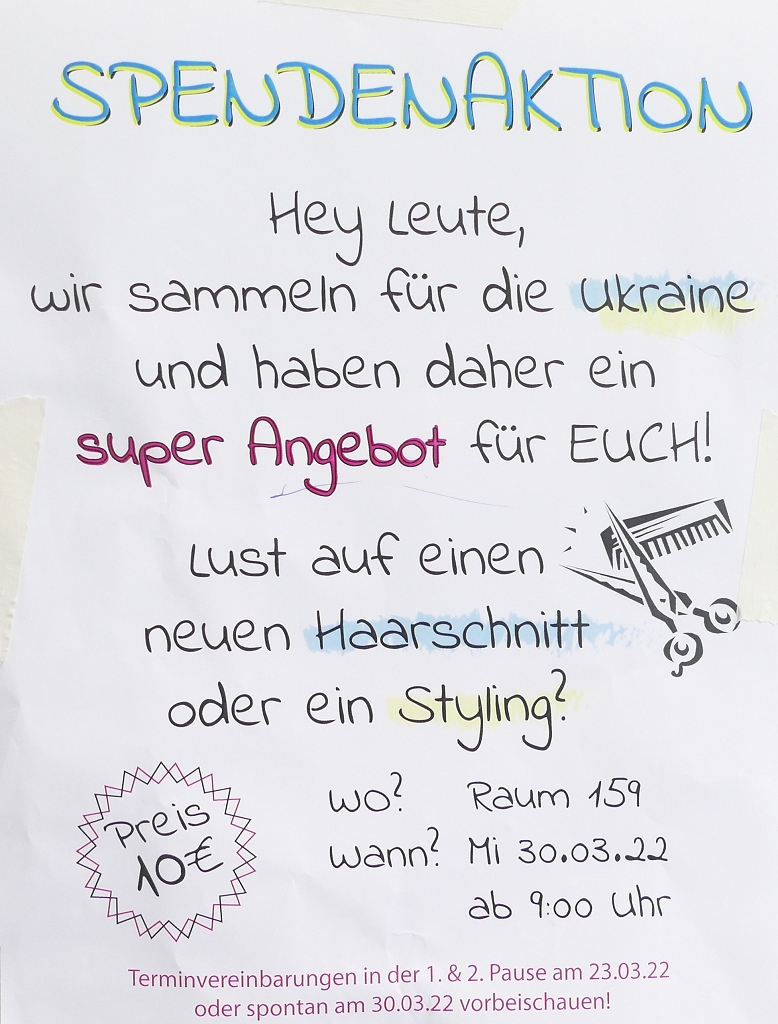 SPENDENAKTION
Hey Leute,
wir sammeln für die Ukraine
und haben daher ein
super Angebot für EUCH!
Lust auf einen
neuen Haarschnitt
oder ein Styling?
Preis
10€
wo? Raum 159
wann? Mi 30.03.22
ab 9:00 Uhr
Terminvereinbarungen in der 1. & 2. Pause am 23.03.22
oder spontan am 30.03.22 vorbeischauen!